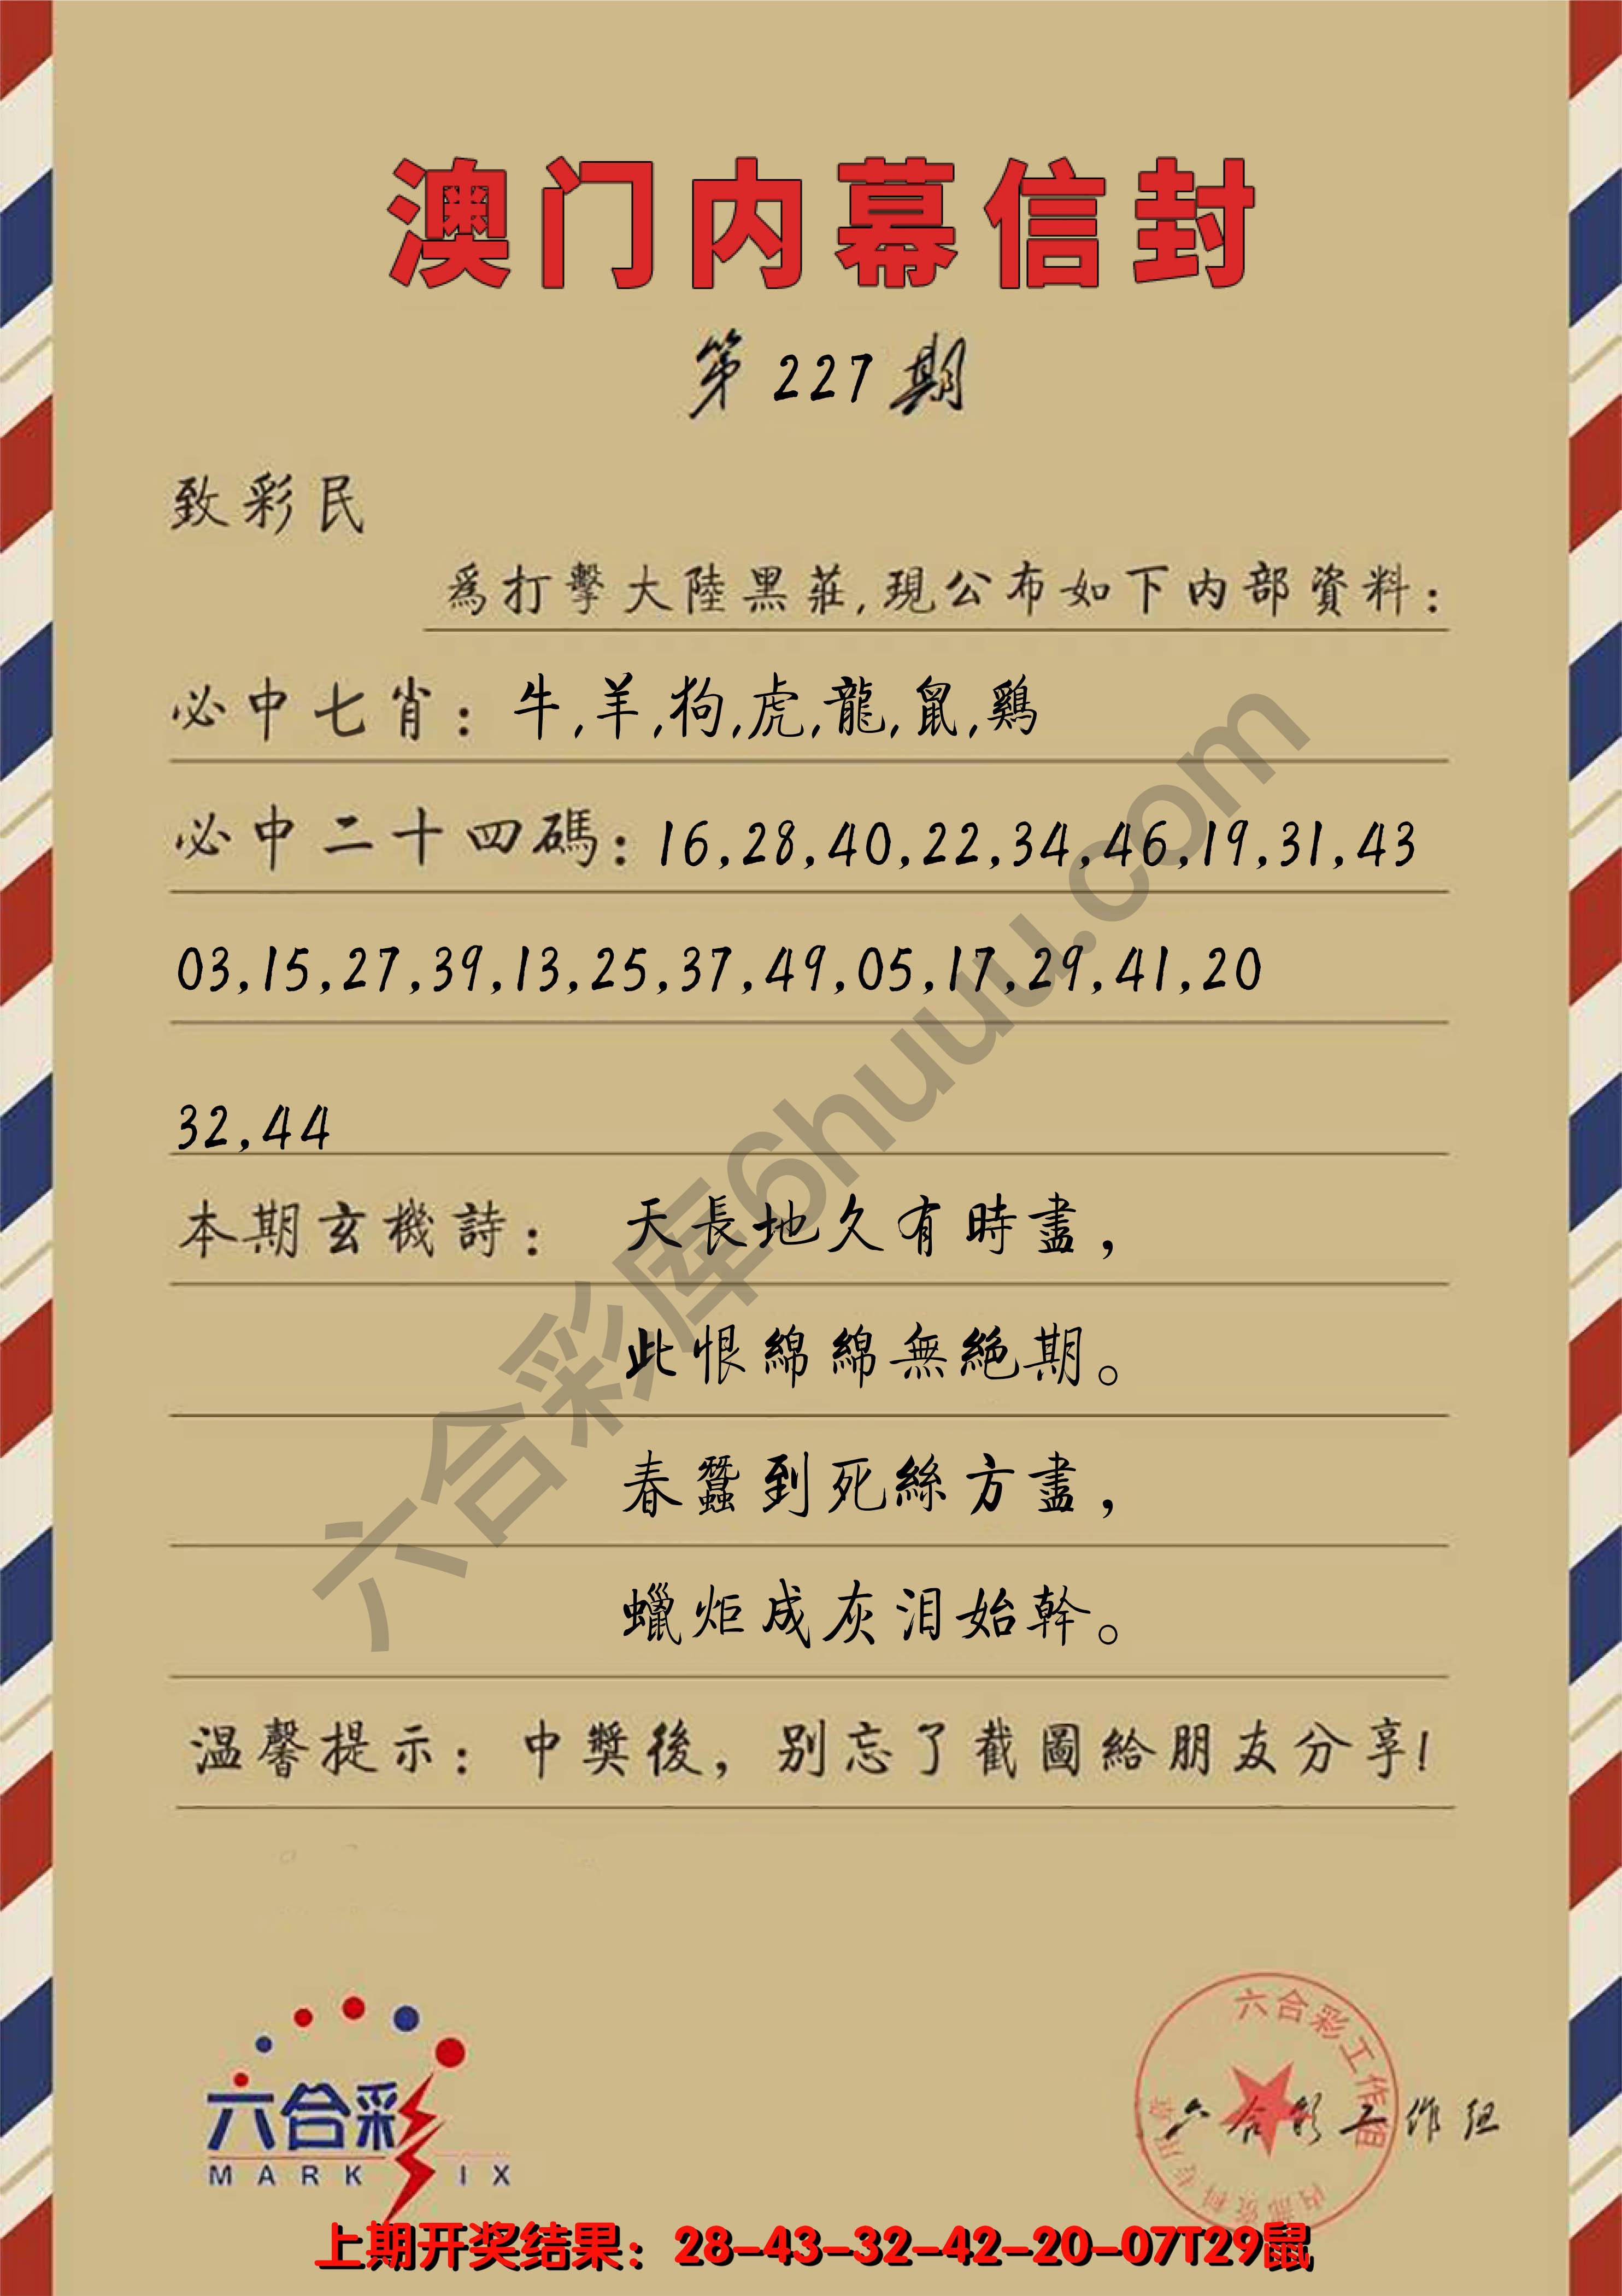 澳门内幕信封
第227期
致彩民
爲打擊大陸黑莊,現公布如下内部資料:
必中七肖: 牛,羊,狗,虎,龍,鼠,鷄
必中二十四碼: 16,28,40,22,34,46,19,31,43
03,15,27,39,13,25,37,49,05,17,29,41,20
32,44
本期玄機詩: 天長地久有時盡,
此恨綿綿無絕期。
春蠶到死絲方盡,
蠟炬成灰泪始幹。
温馨提示: 中獎後, 别忘了截圖給朋友分享!
六合彩库6huuu.com
六合彩
MARK IX
六合彩工作组
六合彩工作组
上期开奖结果: 28-43-32-42-20-07T29鼠